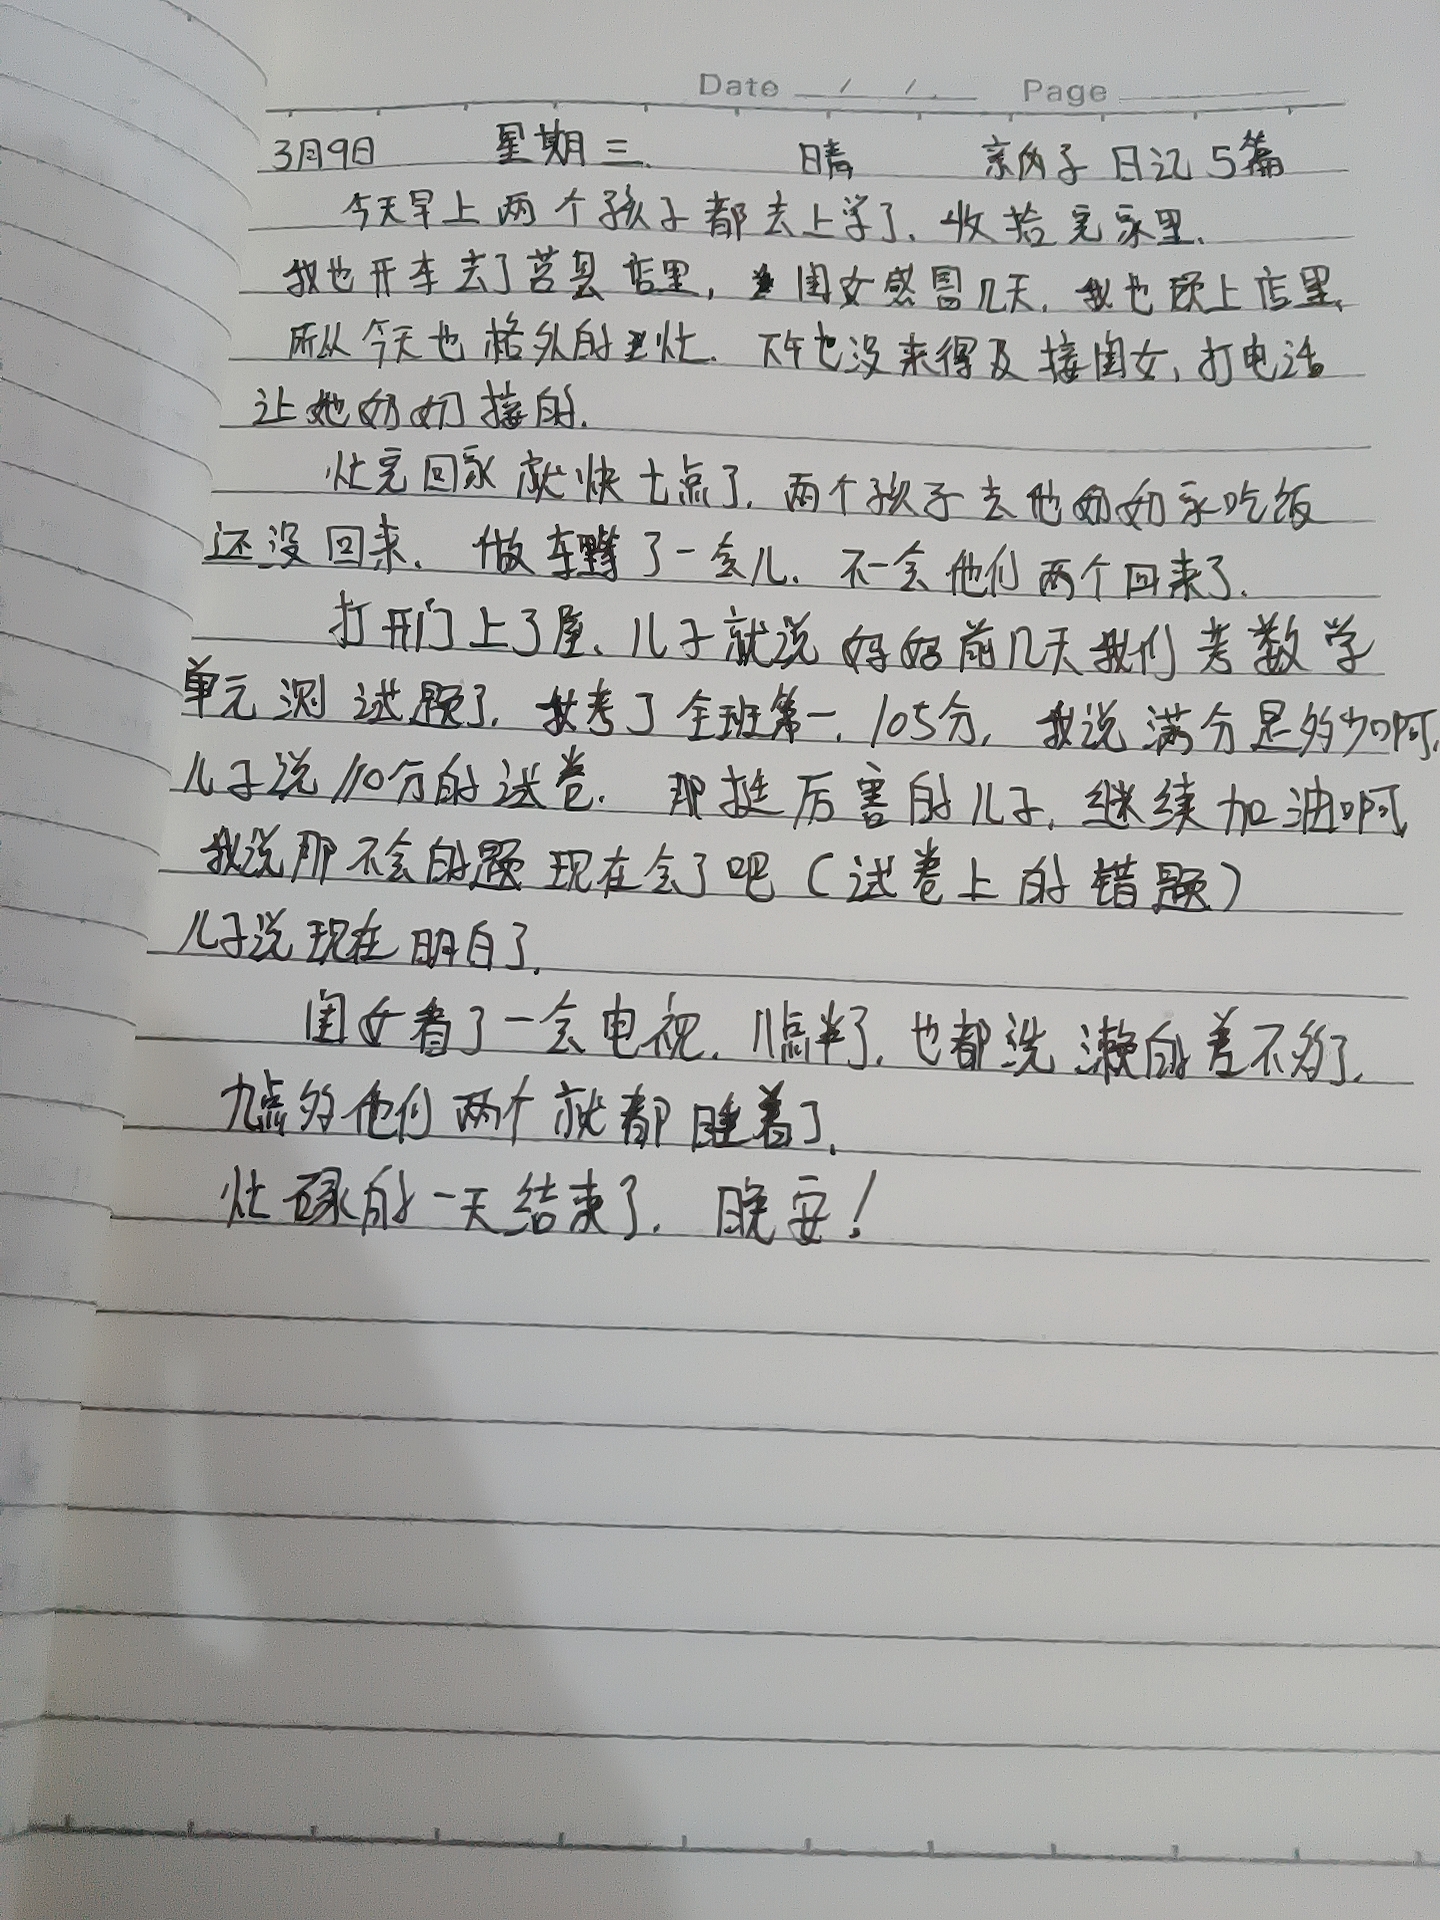 Date / / Page
3月9日 星期三 晴 亲子 日记5篇
今天早上两个孩子都去上学了.收拾完家里.
我也开车去了莒县店里,闺女感冒几天.我也顾上店里,
所以今天也格外的忙.下午也没来得及接闺女,打电话
让她奶奶接的.
忙完回家就快七点了.两个孩子去他奶奶家吃饭
还没回来.做车了一会儿.不一会他们两个回来了.
打开门上了屋.儿子就说妈妈前几天我们考数学
单元测试题了.我考了全班第一.105分,我说满分是多少啊.
儿子说110分的试卷.那挺厉害的儿子.继续加油啊
我说那不会的题现在会了吧(试卷上的错题)
儿子说现在明白了.
闺女看了一会电视.八点半了.也都洗漱的差不多了.
九点多他们两个就都睡着了.
忙碌的一天结束了.晚安!